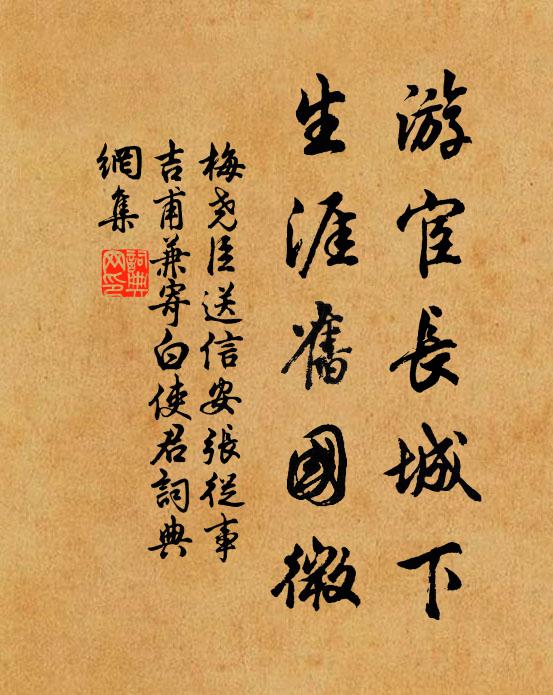 游宦長城下
生涯舊國微
梅堯臣送信安張從事
吉甫兼寄白使君詞典
網集
詞典
网印